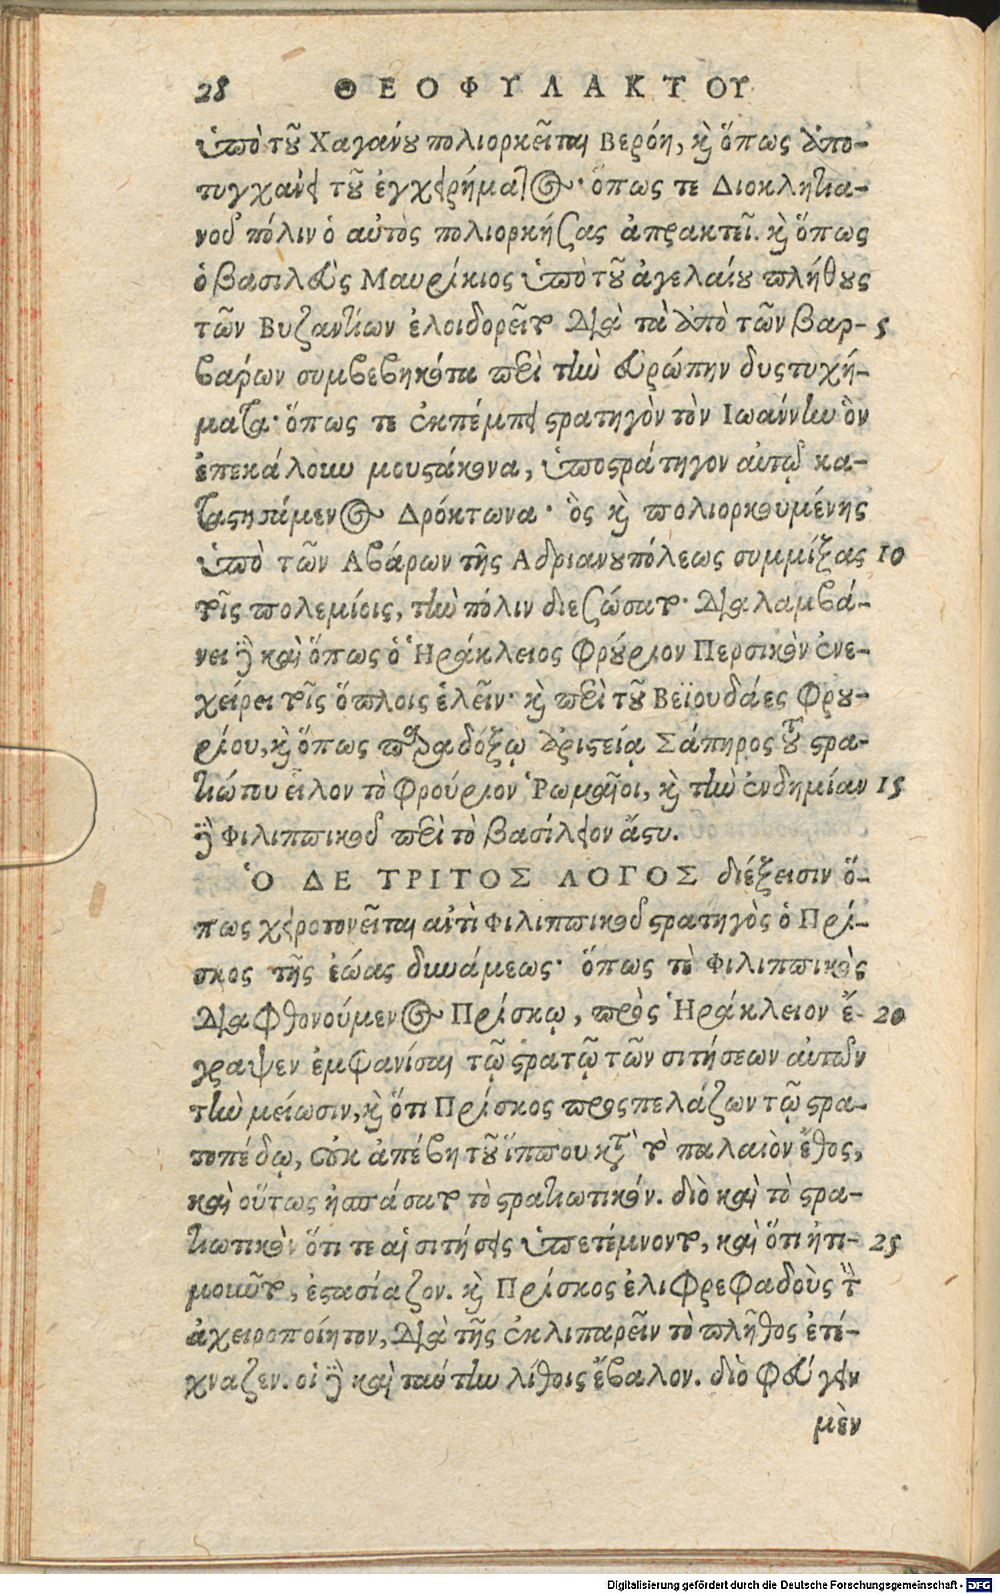 28 ΘΕΟΦΥΛΑΚΤΟΥ
ὑπὸ τοῦ Χαγάνου πολιορκεῖται Βερόη, καὶ ὅπως ἀπο-
τυγχάνει τοῦ ἐγχειρήματος· ὅπως τε Διοκλητια-
νοῦ πόλιν ὁ αὐτὸς πολιορκήσας ἀπρακτεῖ. καὶ ὅπως
ὁ βασιλεὺς Μαυρίκιος ὑπὸ τοῦ ἀγελαίου πλήθους
τῶν Βυζαντίων ἐλοιδορεῖτο διὰ τὰ ἀπὸ τῶν βαρ- 5
βάρων συμβεβηκότα περὶ τὴν εὐρώπην δυστυχή-
ματα· ὅπως τε ἐκπέμπει στρατηγὸν τὸν Ἰωάννην ὃν
ἐπεκάλουν μουστάκονα, ὑποστράτηγον αὐτῷ κα-
ταστησάμενος Δρόκτωνα· ὃς καὶ πολιορκουμένης
ὑπὸ τῶν Ἀβάρων τῆς Ἀδριανουπόλεως συμμίξας 10
τοῖς πολεμίοις, τὴν πόλιν διεσώσατο. διαλαμβά-
νει δὲ καὶ ὅπως ὁ Ἡράκλειος φρούριον Περσικὸν ἐνε-
χείρει τοῖς ὅπλοις ἑλεῖν· καὶ περὶ τοῦ Βεϊουδάες φρου-
ρίου, καὶ ὅπως παραδόξῳ ἀριστείᾳ Σάπηρος τοῦ στρα-
τιώτου εἷλον τὸ φρούριον Ῥωμαῖοι, καὶ τὴν ἐνδημίαν 15
δὲ Φιλιππικοῦ περὶ τὸ βασίλειον ἄστυ.
Ὁ ΔΕ ΤΡΙΤΟΣ ΛΟΓΟΣ διέξεισιν ὅ-
πως χειροτονεῖται ἀντὶ Φιλιππικοῦ στρατηγὸς ὁ Πρί-
σκος τῆς ἑώας δυνάμεως· ὅπως τὲ Φιλιππικὸς
διαφθονούμενος Πρίσκῳ, πρὸς Ἡράκλειον ἔ- 20
γραψεν ἐμφανίσαι τῷ στρατῷ τῶν σιτήσεων αὐτῶν
τὴν μείωσιν, καὶ ὅτι Πρίσκος προσπελάζων τῷ στρα-
τοπέδῳ, οὐκ ἀπέβη τοῦ ἵππου κατὰ τὸ παλαιὸν ἔθος,
καὶ οὕτως ἠσπάσατο τὸ στρατιωτικόν. διὸ καὶ τὸ στρα-
τιωτικὸν ὅτι τε αἱ σιτήσεις ὑπετέμνοντο, καὶ ὅτι ἠτι- 25
μοῦντο, ἐστασίαζον. καὶ Πρίσκος ἐλιφρεφαδοὺς τὴν
ἀχειροποίητον, διὰ τῆς ἐκλιπαρεῖν τὸ πλῆθος ἐτέ-
χναζεν. οἱ δὲ καὶ ταύτην λίθοις ἔβαλον. διὸ φεύγειν
μὲν
Digitalisierung gefördert durch die Deutsche Forschungsgemeinschaft - DFG